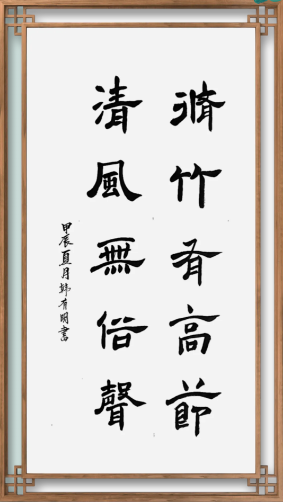 脩竹有高節
清風無俗聲
甲辰夏月韓有開書